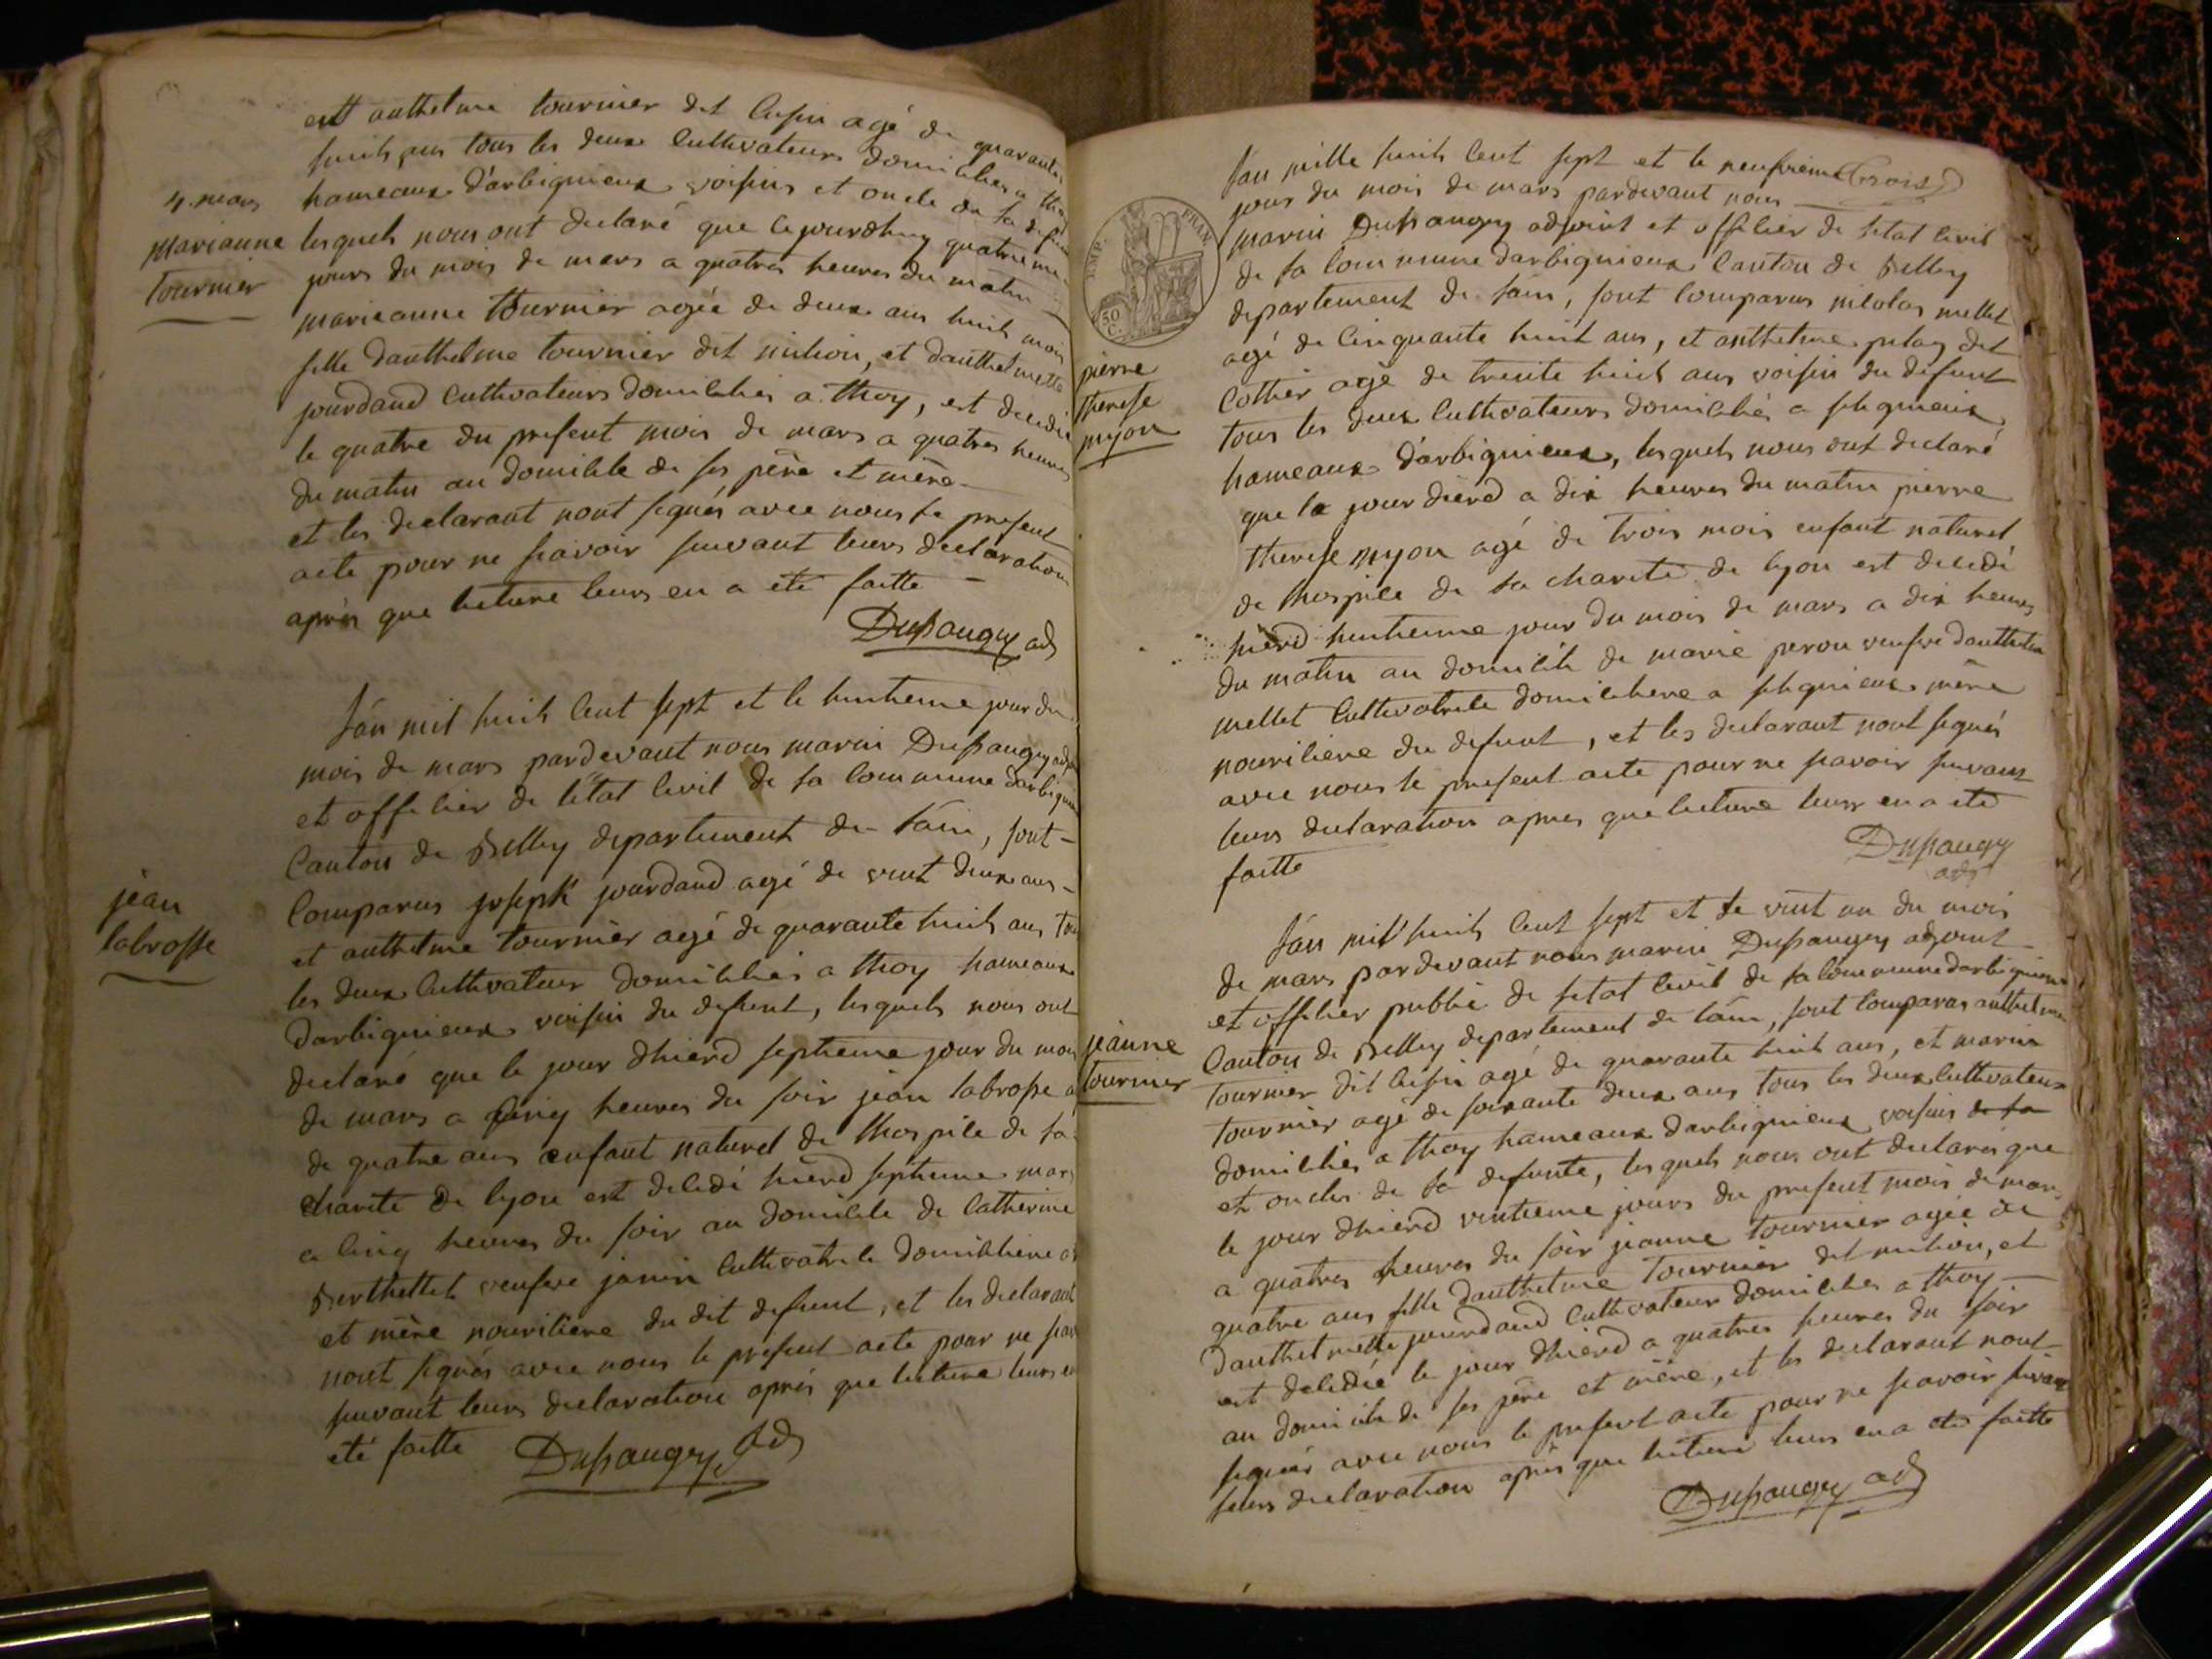 ett anthelme tournier dit lupin agé de quarante
huits ans tous les deux cultivateurs domicilies a thoy
hameaux d'arbignieux voisins et oncle de la defunte
4. mars
marianne
tournier
lesquels nous ont declaré que le jourdhuy quatrieme
jours du mois de mars a quatres heures du matin
marieanne tournier agée de deux ans huit mois
fille danthelme tournier dit mition, et danthelmette
jourdand cultivateurs domiciliés a thoy, est decedée
le quatre du present mois de mars a quatres heures
du matin au domicile de ses père et mère
et les declarant nont signés avec nous le present
acte pour ne scavoir suivant leurs declaration
après que lecture leurs en a eté faitte
Dupaugey adj
jean
labrosse
l'án mil huit cent sept et le huitieme jour du
mois de mars pardevant nous marin Dupaugey adjoint
et officier de l'état civil de la commune darbignieux
Canton de Belley departement de l'ain, sont
comparus joseph jourdand agé de vint deux ans
et anthelme tournier agé de quarante huits ans tous
les deux cultivateur domiciliés a thoy hameaux
darbignieux voisin du defunt, lesquels nous ont
declaré que le jour dhierd septieme jour du mois
de mars a cinq heures du soir jean labrosse agé
de quatre ans enfant naturel de lhospice de la
charité de lyon est decedé hierd septieme mars
a cinq heures du soir au domicile de catherine
Berthettet veufve janin cultivatrice domiciliere a
et mère nouriciere du dit defunt, et les declarant
nont signés avec nous le present acte pour ne scavoir
suivant leurs declaration après que lecture leurs en
eté faitte Dupaugey adj
TIMP. FRAN.
50
C.
pierre
therese
myon
l'an mille huit cent sept et le neufvieme (trois)
jours du mois de mars pardevant nous
marin Dupaugey adjoint et officier de letat civil
de la commune darbignieux canton de Belley
departement de lain, sont comparus nicolas mellet
agé de cinquante huit ans, et anthelme pelag dit
cottier agé de trente huit ans voisin du defunt
tous les deux cultivateurs domiciliés a sligneux
hameaux d'arbignieux, lesquels nous ont declaré
que le jour dierd a dix heures du matin pierre
therese myon agé de trois mois enfant naturel
de lhospice de la charité de lyon est decedé
hierd huitieme jour du mois de mars a dix heures
du matin au domicile de marie peron veufve danthelme
mellet cultivatrice domiciliere a sligneux mère
nouriciere du defunt, et les declarant nont signés
avec nous le present acte pour ne scavoir suivant
leurs declaration apres que lecture leurs en a eté
faitte
Dupaugey
adj
jeanne
tournier
l'án mil huit cent sept et le vint un du mois
de mars pardevant nous marin Dupaugey adjoint
et officier public de letat civil de la commune darbignieux
Canton de Belley departement de l'ain, sont comparus anthelme
tournier dit lupin agé de quarante huit ans, et marin
tournier agé de soixante deux ans tous les deux cultivateur
domiciliés a thoy hameaux darbignieux voisins de la
et oncles de la defunte, lesquels nous ont declarés que
le jour dhierd vintieme jours du present mois de mars
a quatres heures du soir jeanne tournier agée de
quatre ans fille danthelme tournier dit mition, et
danthelmette jourdand cultivateur domicilies a thoy
est decedée le jour dhierd a quatres heures du soir
au domicile de ses père et mère, et les declarant nont
signés avec nous le present acte pour ne scavoir suivant
leurs declaration après que lecture leurs en a eté faitte
Dupaugey adj